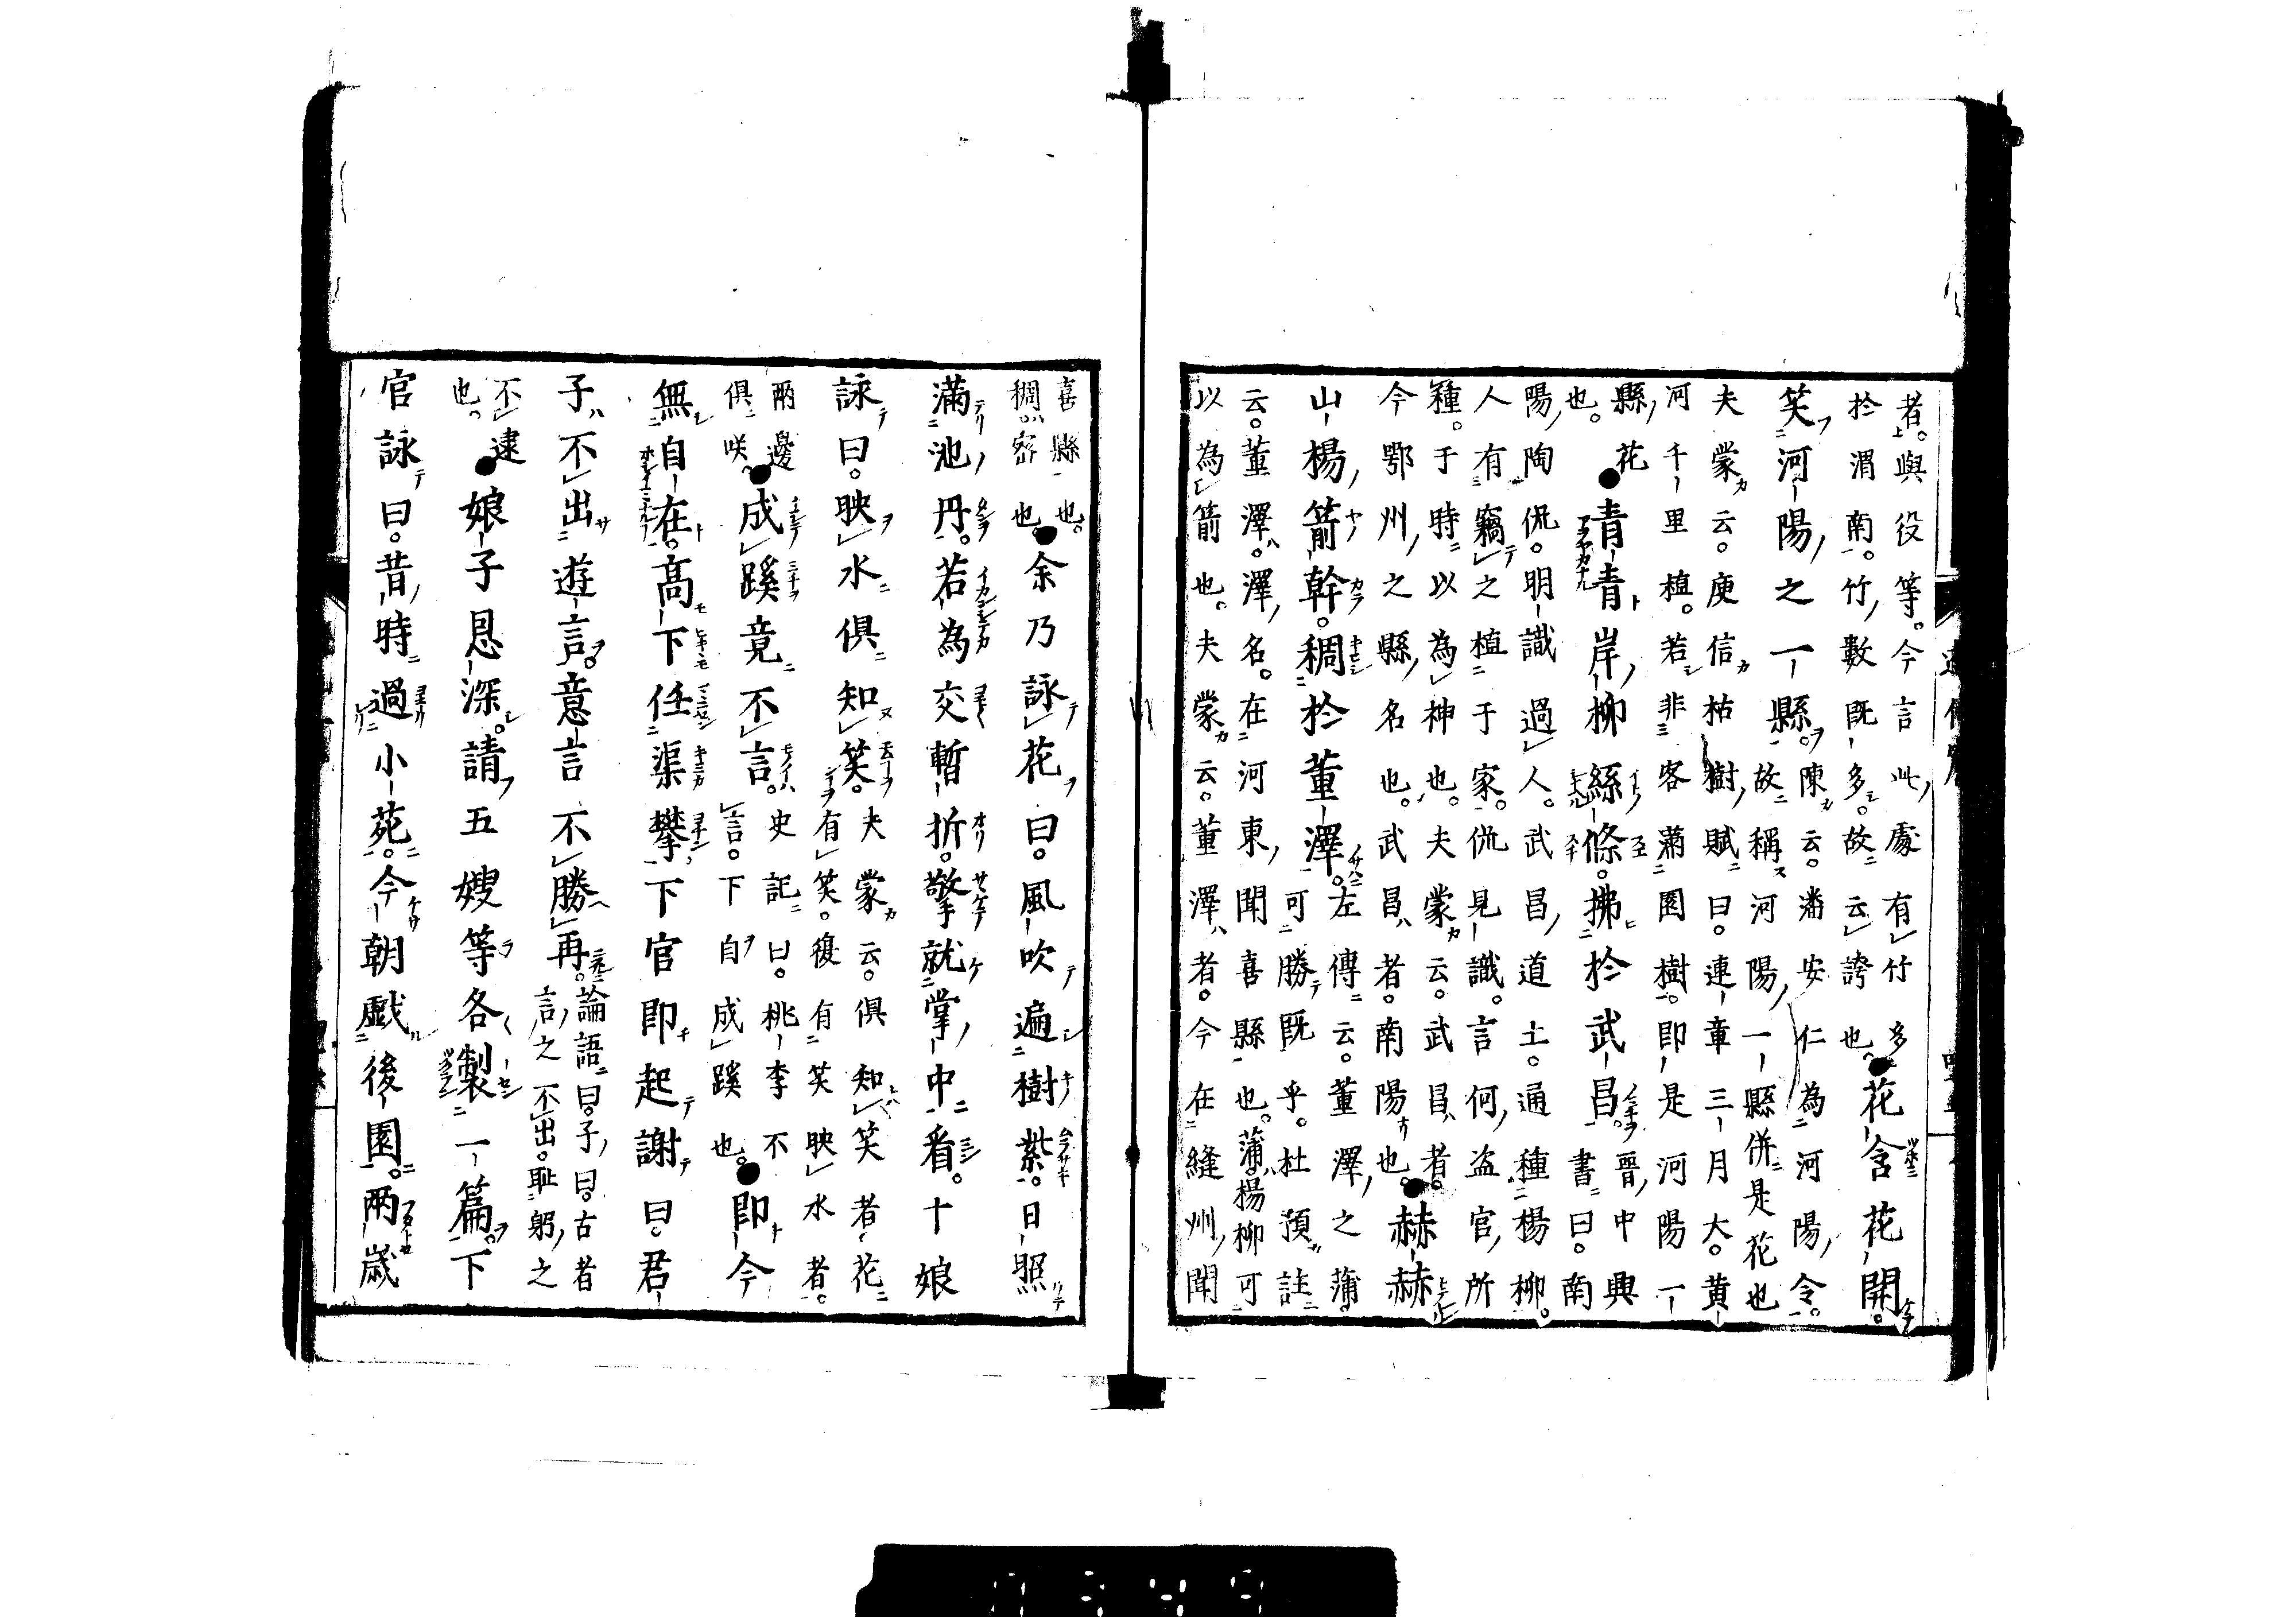 者。與役等。今言此處有竹多
於渭南。竹數既多。故云誇也。花含花開。
笑河陽之一縣。陳云。潘安仁為河陽令。
故稱河陽一縣併是花也
夫蒙云。庾信枯樹賦曰。連章三月大。黄
河千里植。若非客蒲園樹。即是河陽一
縣花
也。青青岸柳絲條。拂於武昌。晋中興
書曰。南
陽陶侃。明識過人。武昌道土。通種楊柳。
人有竊之植于家。侃見識。言何盗官所
種。于時以為神也。夫蒙云。武昌者。
今鄂州之縣名也。武昌者。南陽也。赫赫
山楊箭幹。稠於董澤。左傳云。董澤之蒲。
可勝既乎。杜預註
云。董澤。澤名。在河東聞喜縣也。蒲楊柳可
以為箭也。夫蒙云。董澤者。今在縫州聞
喜縣也。
稠。密也。余乃詠花曰。風吹遍樹紫。日照
滿池丹。若為交暫折。擎就掌中看。十娘
詠曰。映水俱知笑。夫蒙云。俱知笑者花
有笑。復有笑映水者。
兩邊
俱咲。成蹊竟不言。史記曰。桃李不
言。下自成蹊也。即今
無自在。高下任渠攀。下官即起謝曰。君
子不出遊言。意言不勝再。論語曰。子曰。古者
言之不出。耻躬之
不逮
也。娘子恩深。請五嫂等各製一篇。下
官詠曰。昔時過小苑。今朝戲後園。兩歲